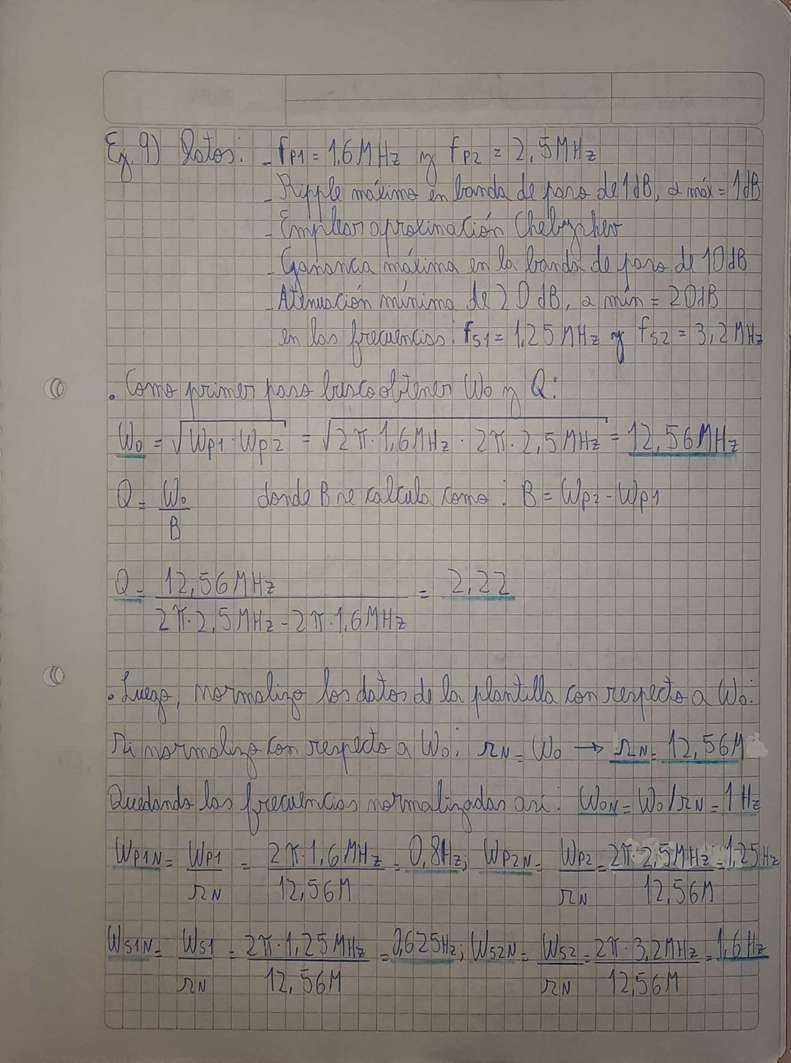 Ej. 9) Datos: - fP1 = 1,6MHz y fP2 = 2,5MHz
- Ripple máximo en banda de paso de 1dB, α máx = 1dB
- Emplear aproximación Chebyshev
- Ganancia máxima en la banda de paso de 10dB
- Atenuación mínima de 20dB, α mín = 20dB
en las frecuencias: fS1 = 1,25MHz y fS2 = 3,2MHz
• Como primer paso busco obtener W0 y Q:
W0 = √(WP1 · WP2) = √(2π · 1,6MHz · 2π · 2,5MHz) = 12,56MHz
Q = W0/B donde B se calcula como: B = WP2 - WP1
Q = 12,56MHz/(2π·2,5MHz - 2π·1,6MHz) = 2,22
• Luego, normalizo los datos de la plantilla con respecto a W0:
Si normalizo con respecto a W0: ΩN = W0 → ΩN = 12,56M
Quedando las frecuencias normalizadas así: W0N = W0/ΩN = 1Hz
WP1N = WP1/ΩN = 2π·1,6MHz/12,56M = 0,8Hz; WP2N = WP2/ΩN = 2π·2,5MHz/12,56M = 1,25Hz
WS1N = WS1/ΩN = 2π·1,25MHz/12,56M = 0,625Hz; WS2N = WS2/ΩN = 2π·3,2MHz/12,56M = 1,6Hz